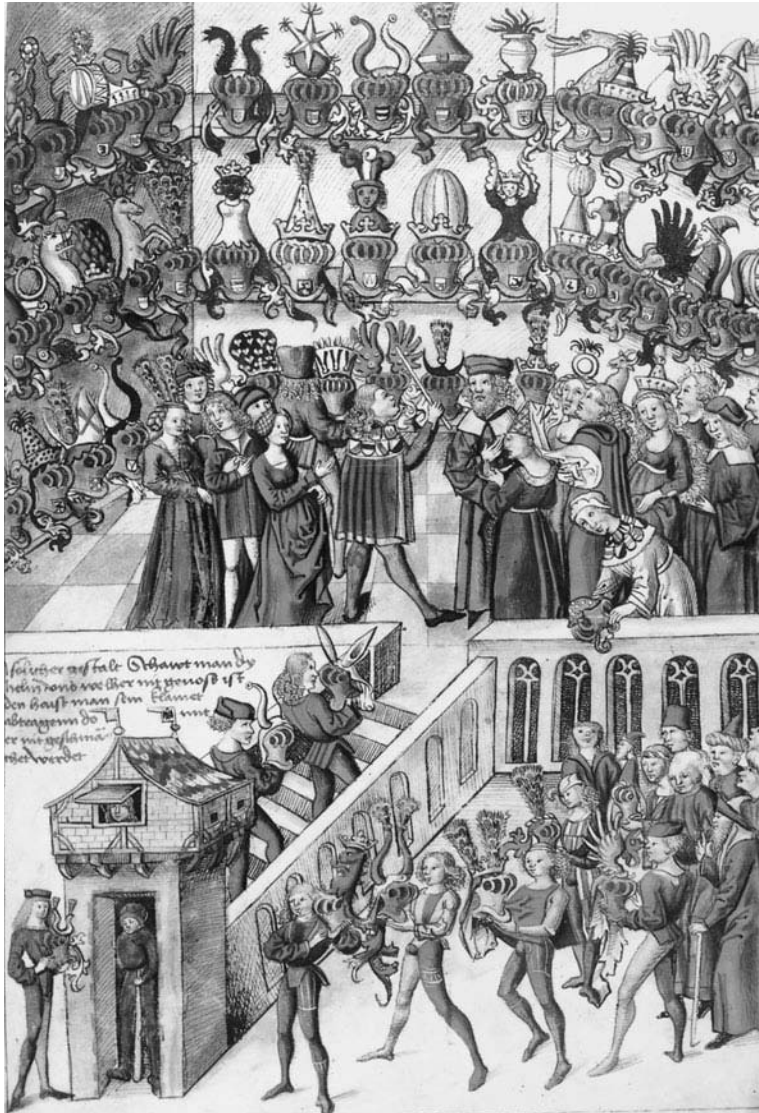 solicher gestalt Schawt man dy
helm vnd welher nit genost ist
den haist man sein klainet
abtragenn do mit
er nit geschmä
chet werdet